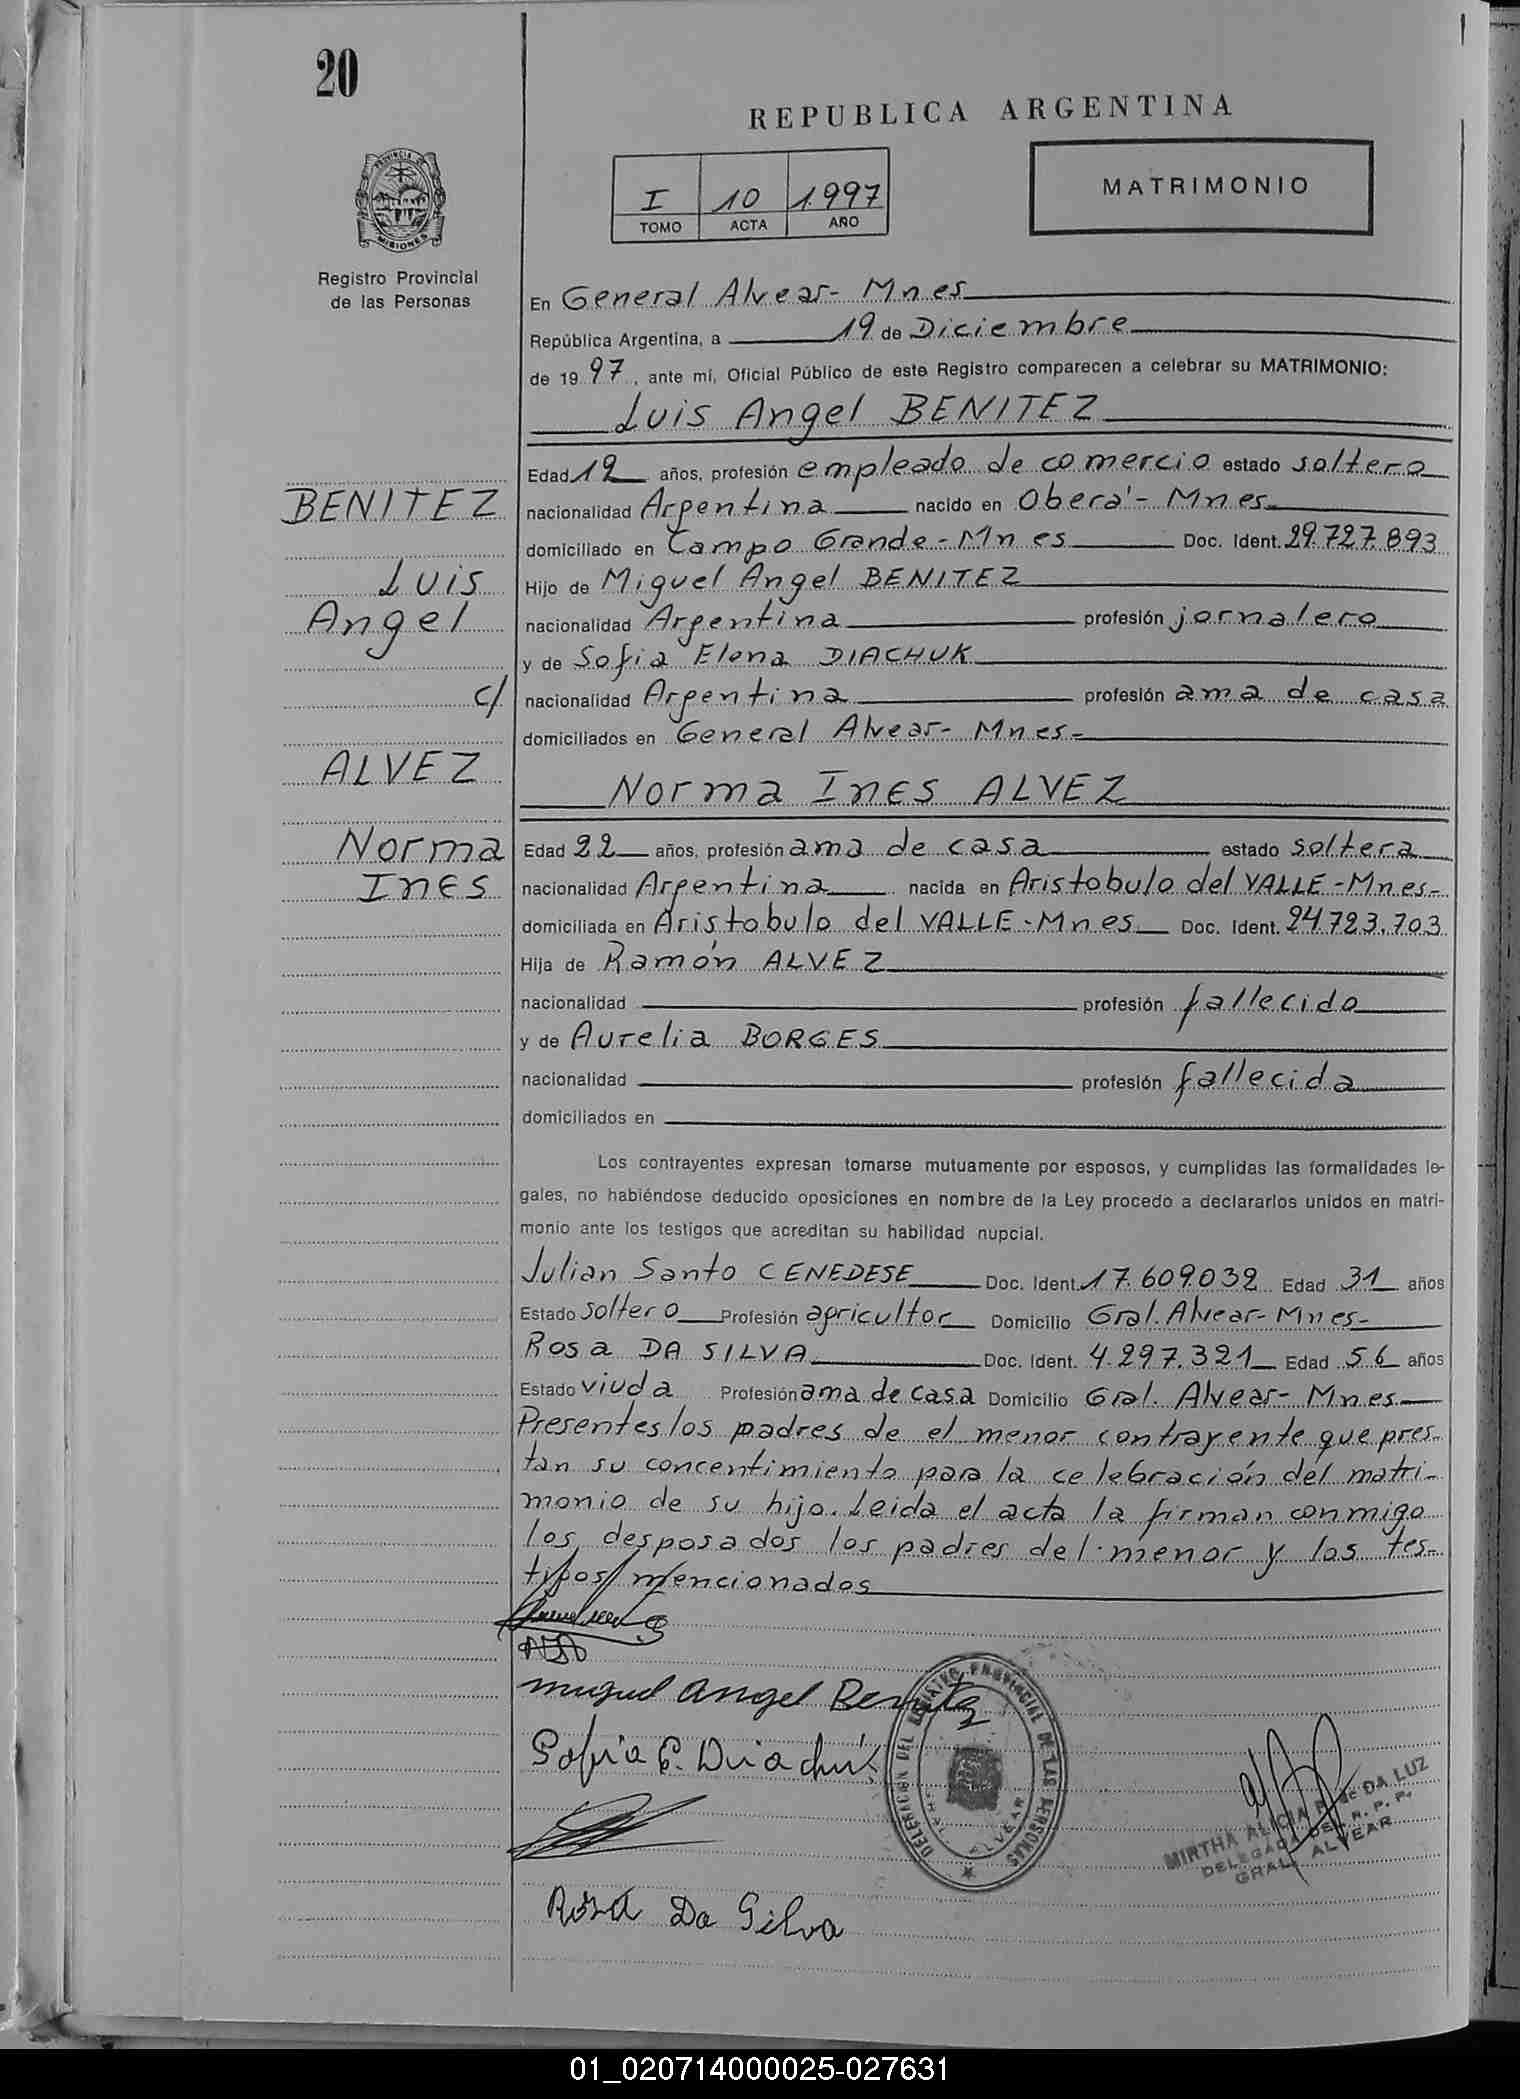 20
REPUBLICA ARGENTINA
PROVINCIA DE
MISIONES
Registro Provincial
de las Personas
I 10 1.997
TOMO ACTA AÑO
MATRIMONIO
En General Alvear- Mnes
República Argentina, a 19 de Diciembre
de 19 97, ante mí, Oficial Público de este Registro comparecen a celebrar su MATRIMONIO:
Luis Angel BENITEZ
Edad 19 años, profesión empleado de comercio estado soltero
BENITEZ
nacionalidad Argentina nacido en Oberá - Mnes
domiciliado en Campo Grande - Mnes Doc. Ident. 29.727.893
Luis
Hijo de Miguel Angel BENITEZ
Angel
nacionalidad Argentina profesión jornalero
y de Sofia Elena DIACHUK
c/
nacionalidad Argentina profesión ama de casa
domiciliados en General Alvear- Mnes-
ALVEZ
Norma INES ALVEZ
Norma
Edad 22 años, profesión ama de casa estado soltera
INES
nacionalidad Argentina nacida en Aristobulo del VALLE - Mnes-
domiciliada en Aristobulo del VALLE - Mnes Doc. Ident. 24.723.703
Hija de Ramón ALVEZ
nacionalidad profesión fallecido
y de Aurelia BORGES
nacionalidad profesión fallecida
domiciliados en
Los contrayentes expresan tomarse mutuamente por esposos, y cumplidas las formalidades le-
gales, no habiéndose deducido oposiciones en nombre de la Ley procedo a declararlos unidos en matri-
monio ante los testigos que acreditan su habilidad nupcial.
Julian Santo CENEDESE Doc. Ident. 17.609.032 Edad 31 años
Estado soltero Profesión agricultor Domicilio Gral. Alvear- Mnes-
Rosa DA SILVA Doc. Ident. 4.297.321 Edad 56 años
Estado viuda Profesión ama de casa Domicilio Gral. Alvear- Mnes
Presentes los padres de el menor contrayente que pres-
tan su concentimiento para la celebración del matri-
monio de su hijo. Leida el acta la firman conmigo
los desposados los padres del menor y los tes-
tigos mencionados
Miguel Angel Benitez
Sofia E. Diachuk
DELEGACION DEL REGISTRO PROVINCIAL DE LAS PERSONAS
GRAL. ALVEAR
MIRTHA ALICIA R. de DA LUZ
DELEGADA DEL R. P. P.
GRAL. ALVEAR
Rosa Da Silva
01_020714000025-027631